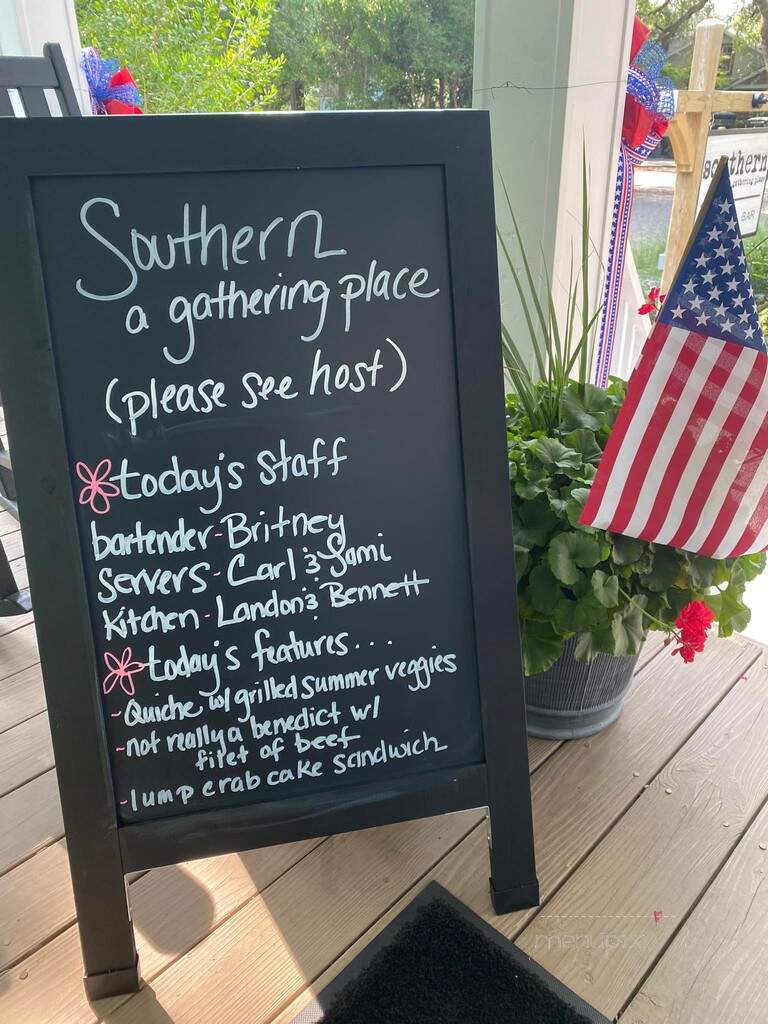 Southern
a gathering place
(please see host)
today's staff
bartender-Britney
Servers-Carl & Jami
Kitchen-Landon & Bennett
today's features...
-Quiche w/ grilled summer veggies
-not really a benedict w/
filet of beef
-lump crab cake sandwich
southern
gathering place
BAR
menupix